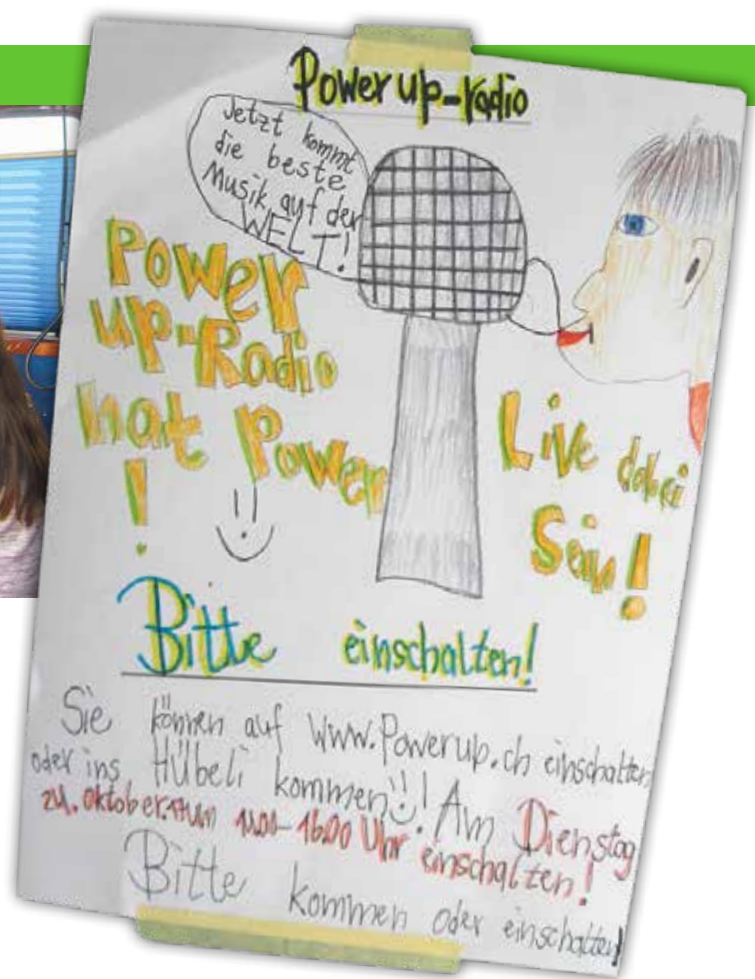 Power up-radio
Jetzt kommt
die beste
Musik auf der
WELT!
Power
up-Radio
hat Power
!
Live dabei
Sein!
Bitte einschalten!
Sie können auf www.Powerup.ch einschalten
oder ins Hübeli kommen! Am Dienstag
24. Oktober um 11.00-16.00 Uhr einschalten!
Bitte kommen oder einschalten!